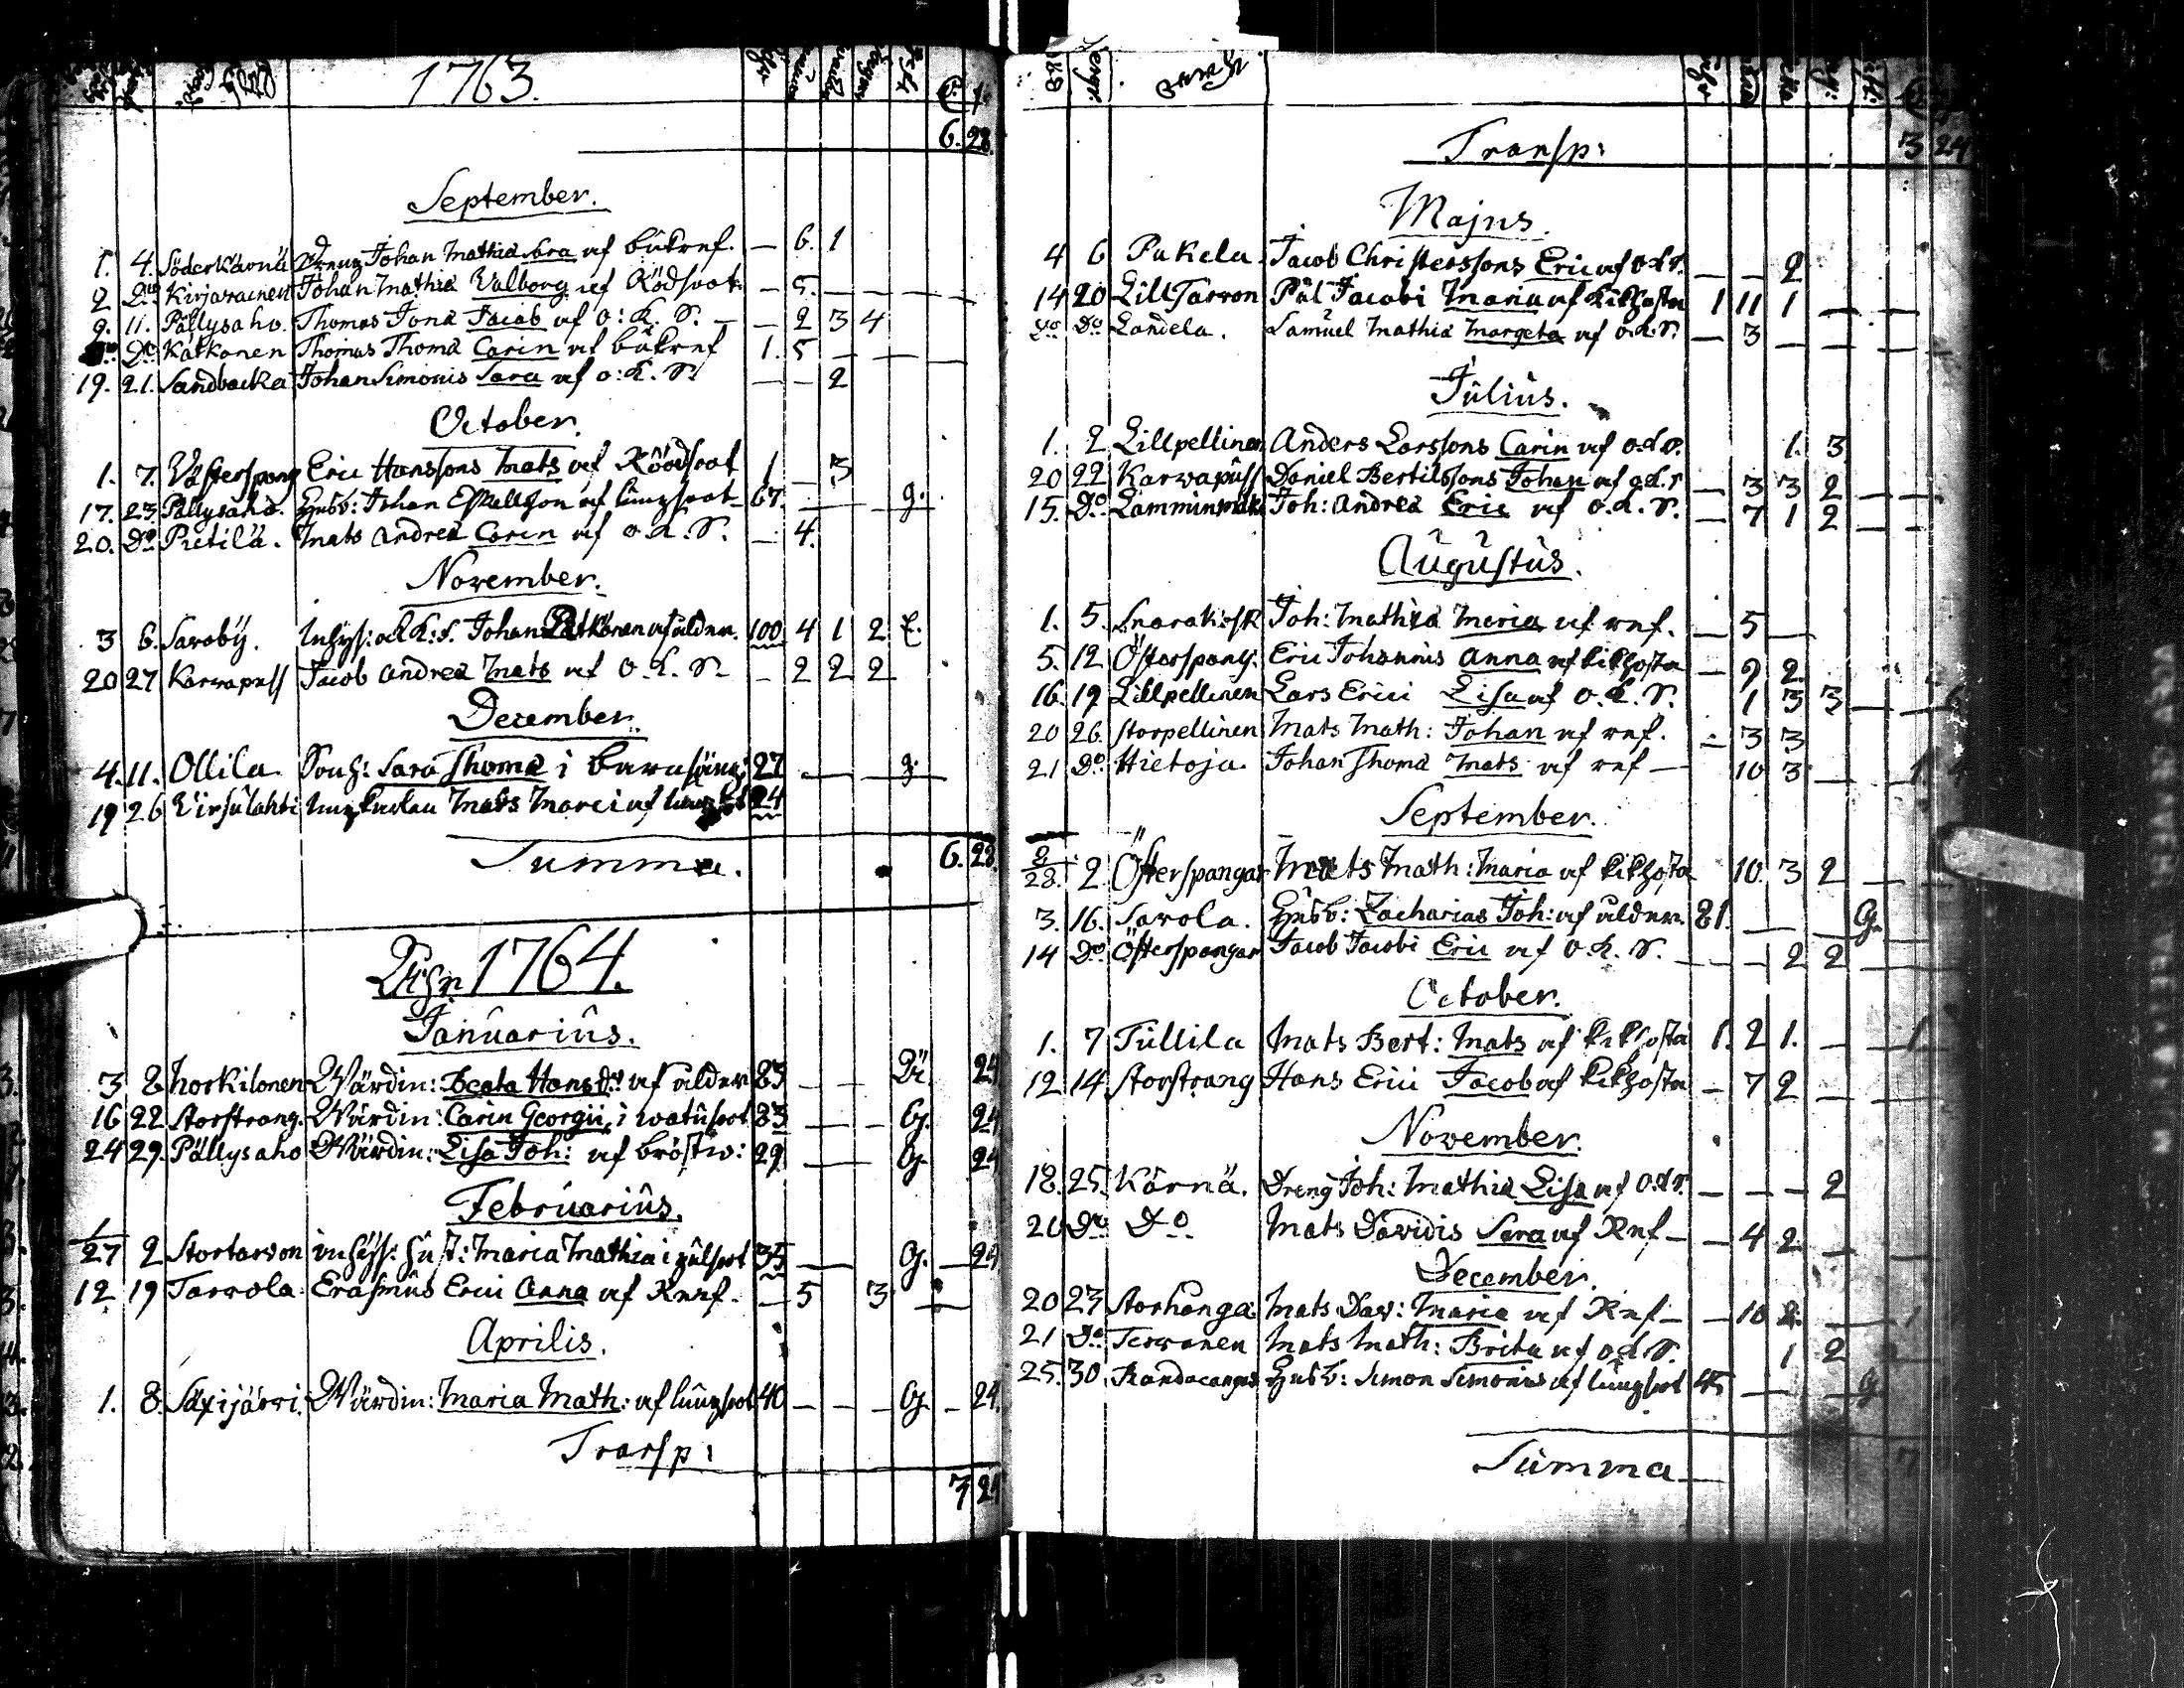 1763.
6. 28.
September.
1. 4. Söderkärnä Dreng Johan Mathiæ Sara af bukref. — 6. 1
2 Dito Kirjavainen Johan Mathiæ Valborg af Rödsoot — 5. — — —
9. 11. Pällysaho. Thomas Jonæ Jacob af o: k. S. — — 2 3 4
Do Do Katkonen Thomas Thomæ Carin af bukref 1. 5 — — —
19. 21. Sandbacka Johan Simonis Sara af o: k. S. — — 2
October.
1. 7. Västerspong Eric Hanssons Mats af Röödsoot 1 — 3
17. 23. Pällysaho. Husb: Johan Eskellson af lungsoot 67. — — g.
20. Do Pietilä. Mats Andreæ Carin af o. k. S. — 4.
November.
3 6. Saroby. Inhys: Johan af ålder. 100 4 1 2
20 27 Karvapuss Jacob Andreæ Mats af o. k. S. — 2 2 2
December.
4. 11. Ollila Sara Thomæ i barnsäng 27 — — g.
19 26 Virsulahti Ungkarlen Mats Marci af 24
Summa. 6. 28.
1764.
Januarius.
3 8 Horkilonen Wärdin: Beata Hansdr af ålder 83 — — 24
16 22 Storstrang. Wärdin: Carin Georgii i watusoot 83 — — G. 24
24 29. Pällysaho Wärdin: Lisa Joh: af bröstw: 29 — — G. 24
Februarius.
1/27 2 Stortarvon inhyss: hust: Maria Mathiæ i gulsoot 35 — G. — 24
12 19 Tarvola Erasmus Erici Anna af Rref. — 5 3 —
Aprilis.
1. 8. Saxijärvi. Wärdin: Maria Math: af lungsoot 40 — — — G. — 24.
Transp:
3 24
Transp: 3 24
Majus.
4 6 Pukela Jacob Christerssons Eric af o.k.S. — — 2
14 20 Lill Tarvon Pål Jacobi Maria af kikhosta 1 11 1 — —
Do Do Landela. Samuel Mathiæ Margeta af o.k.S. — 3 — — —
Julius.
1. 2 Lillpellinen Anders Larssons Carin af o.k.S. 1. 3
20 22 Karvapuss Daniel Bertilssons Johan af o.k.S — 3 3 2 — —
15. Do Lamminmäki Joh: Andreæ Eric af o.k.S. — 7 1 2 — —
Augustus.
1. 5. Snarakosk Joh: Mathiæ Maria af ref. — 5 —
5. 12 Österspong. Eric Johannis Anna af kikhosta — 9 2
16. 19 Lillpellinen Lars Erici Lisa af o. k. S. 1 3 3 —
20 26. Storpellinen Mats Math: Johan af ref. — 3 3
21 Do Hietoja. Johan Thomæ Mats af ref — 10 3 —
September.
8/28. 2. Österspongar Mats Math: Maria af kikhosta 10. 3 2 —
3. 16. Savola. Husb: Zacharias Joh: af ålder. 81. — — G.
14 Do Österspongar Jacob Jacobi Eric af o. k. S. — — 2 2 —
October.
1. 7 Tullila Mats Bert: Mats af kikhosta 1. 2 1. —
12 14 Storstrang Hans Erici Jacob af kikhosta — 7 2 —
November.
18. 25. Kärnä. Dreng Joh: Mathiæ Lisa af o.k.S. — — — 2
20 Do Do Mats Davidis Sara af Ref — — 4 2 —
December.
20 23 Storhanga Mats Dav: Maria af Ref — — 10 2. —
21 Do Tervonen Mats Math: Brita af o.k.S. 1 2
25. 30. Husb: Simon Simonis af lungsoot 45 — — g
Summa